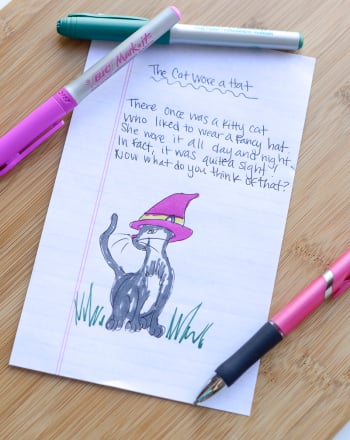 BIC Mark-it
The Cat Wore a Hat
There once was a Kitty cat
Who liked to wear a Fancy hat.
She wore it all day and night.
In fact, it was quite a sight.
Now what do you think of that?